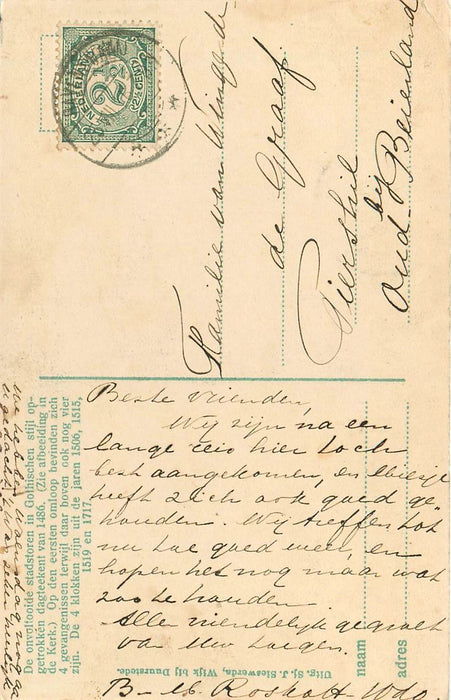 NEDERLAND
2½
CENT
Familie van Wingerde
de Graaf
Piershil
bij
Oud-Beierland
De onvoltooide stadstoren in Gothischen stijl op-
getrokken dagteekent van 1486. (Zie afbeelding in
de Kerk.) Op den eersten omloop bevinden zich
4 gevangenissen terwijl daar boven ook nog vier
zijn. De 4 klokken zijn uit de jaren 1506, 1515,
1519 en 1717
Beste vrienden
Wij zijn na een
lange reis hier toch
best aangekomen, en
heeft zich ook goed ge
houden. Wij treffen tot
nu toe goed weer, en
hopen het nog maar wat
zoo te houden.
Allen vriendelijk gegroet
van Uw
naam
adres
Uitg. Sj. J. Sieswerda, Wijk bij Duurstede.